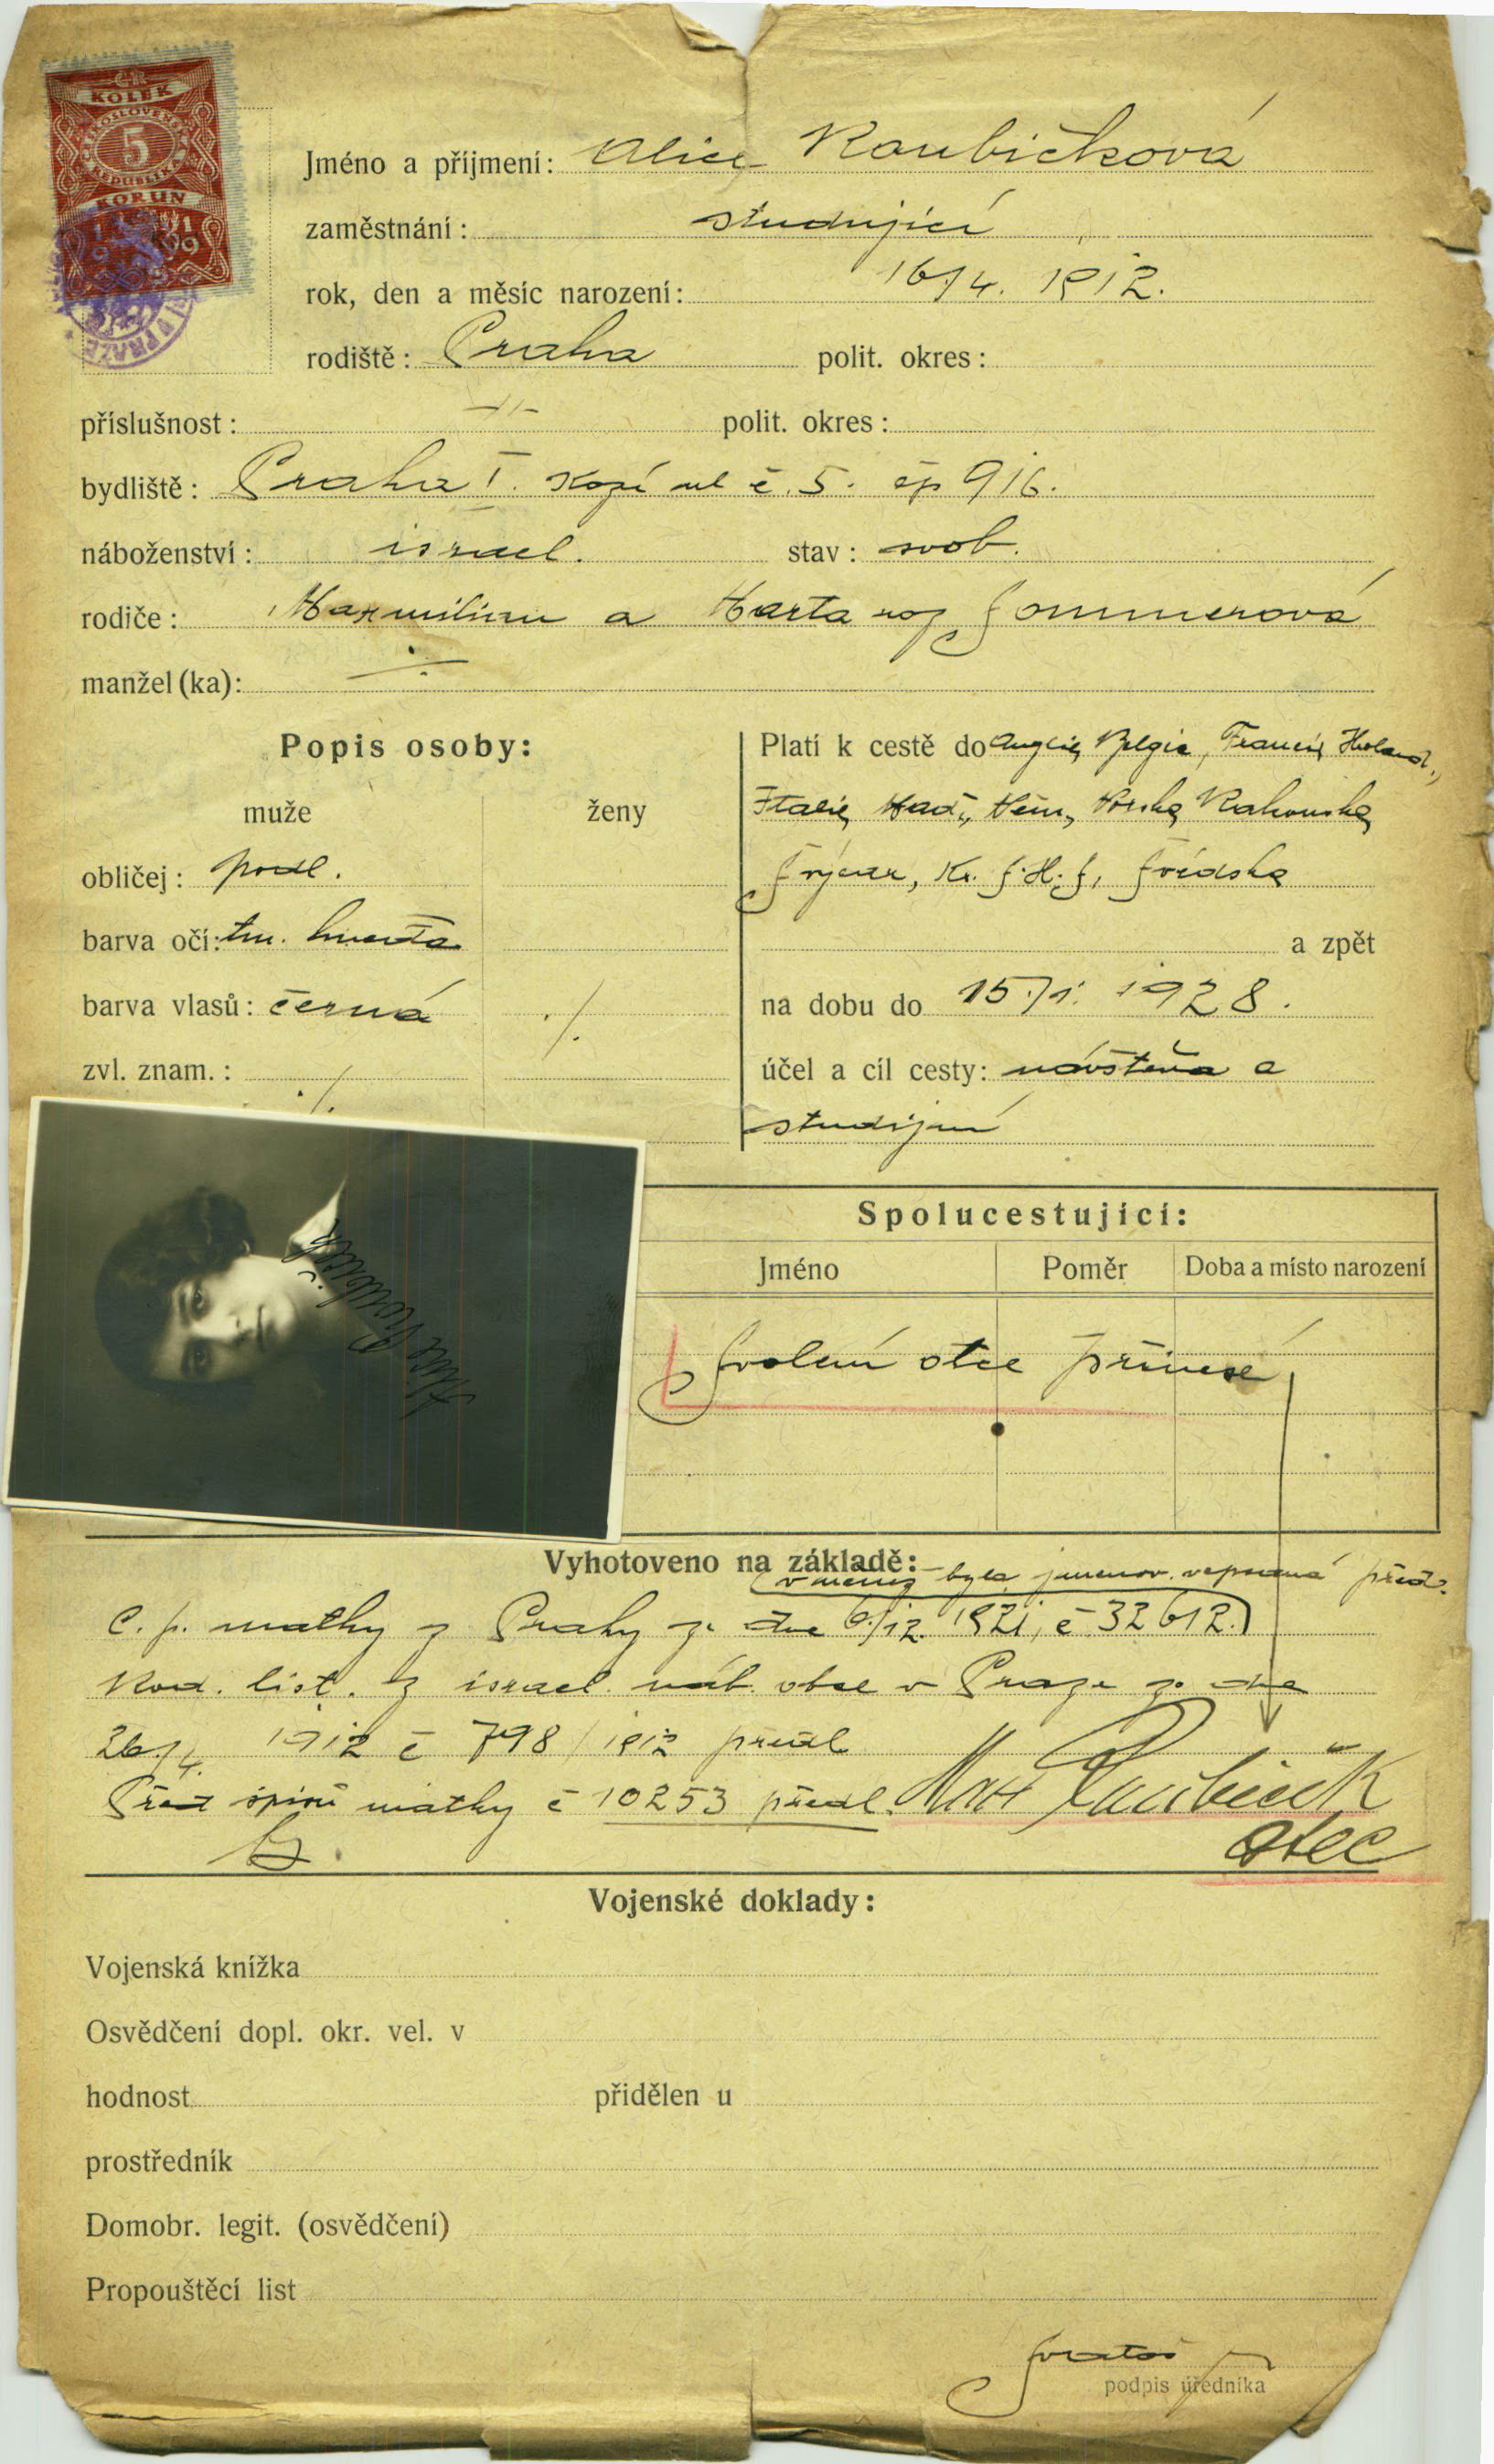 ČR
KOLEK
ČESKOSLOVENSKÁ
5
REPUBLIKA
KORUN
1919
PRAZE
Jméno a příjmení: Alice Roubíčková
zaměstnání: studující
rok, den a měsíc narození: 16/4. 1912.
rodiště: Praha polit. okres:
příslušnost: -"- polit. okres:
bydliště: Praha I. Kozí ul č. 5. čp 916.
náboženství: israel. stav: svob.
rodiče: Maxmilian a Marta roz Sommerová
manžel(ka): ÷
Popis osoby:
muže ženy
obličej: podl.
barva očí: tm. hnědá
barva vlasů: černá ./.
zvl. znam.: ./.
Platí k cestě do Anglie, Belgie, Francie, Holand.,
Italie, Maď., Něm., Polska, Rakouska,
Švýcar, Kr. S.H.S, Švédska
a zpět
na dobu do 15./1. 1928.
účel a cíl cesty: návštěva a
studijní
Alice Roubíčk
Spolucestující:
Jméno Poměr Doba a místo narození
Svolení otce přinese
Vyhotoveno na základě:
v němž byla jmenov. vepsaná před.
C. p. matky z Prahy ze dne 6./12. 1921, č 32612.)
Rod. list. z israel. náb. obce v Praze ze dne
26./4. 1912 č 798/1912 předl
Před spisů matky č 10253 předl. Max Roubíček
otec
Vojenské doklady:
Vojenská knížka
Osvědčení dopl. okr. vel. v
hodnost přidělen u
prostředník
Domobr. legit. (osvědčení)
Propouštěcí list
podpis úředníka